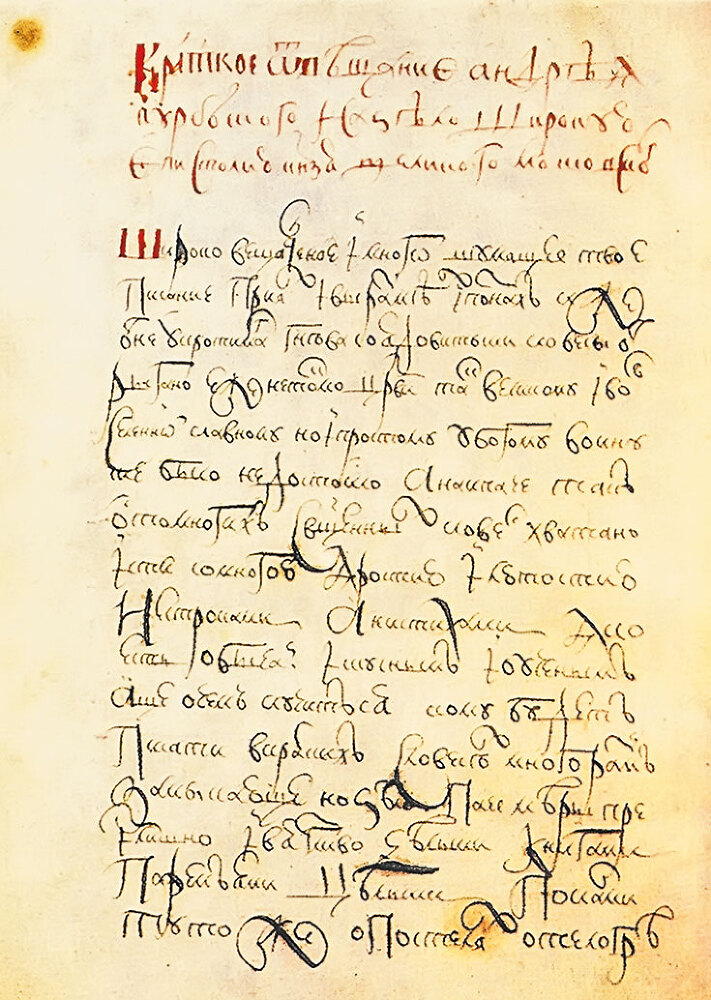 Краткое ѿвѣщание андрѣѧ
курбского на зѣло широкую
епистолию кнѧзѧ великого московско
Широковещателное і многошумящее твое
писание приях і выразумѣхъ і познахъ иже
ѿ неукротимаго гнѣва со ядовитыми словесы о
рыгано еже нетокмо цареви так великому і во
вселеннои славному но і простому убогому воину
не было недостойно а наипаче такъ
ото многихъ священных словес хватано
і те со многою яростию і лютостию
ни строками а ни стихами яко
есть обычаи искуснымъ і ученымъ
аще о чемъ случитъся кому будетъ
писати вкраткихъ словесехъ многоразумъ
замыкающе но зѣло паче мѣры пре
излишно і звягливо цѣлыми книгами
паремьями цѣлыми посланми
туто же о постелях о телогрѣ